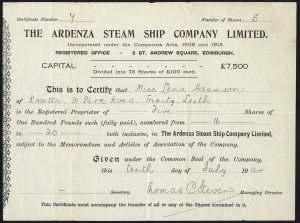 Certificate Number 7 Number of Shares 5
THE ARDENZA STEAM SHIP COMPANY LIMITED.
Incorporated under the Companies Acts, 1908 and 1913.
REGISTERED OFFICE - 2 ST. ANDREW SQUARE, EDINBURGH.
CAPITAL £7,500
Divided into 75 Shares of £100 each
This is to Certify that Miss Lena Adamson
of Rosetta, Park Road, Trinity, Leith
is the Registered Proprietor of Five Shares of
One Hundred Pounds each (fully paid), numbered from 16
to 20 both inclusive, in The Ardenza Steam Ship Company Limited,
subject to the Memorandum and Articles of Association of the Company.
Given under the Common Seal of the Company,
this tenth day of July 1914
Secretary. Thomas C Steven Managing Director.
This Certificate must accompany the transfer of all or any of the Shares contained in it.